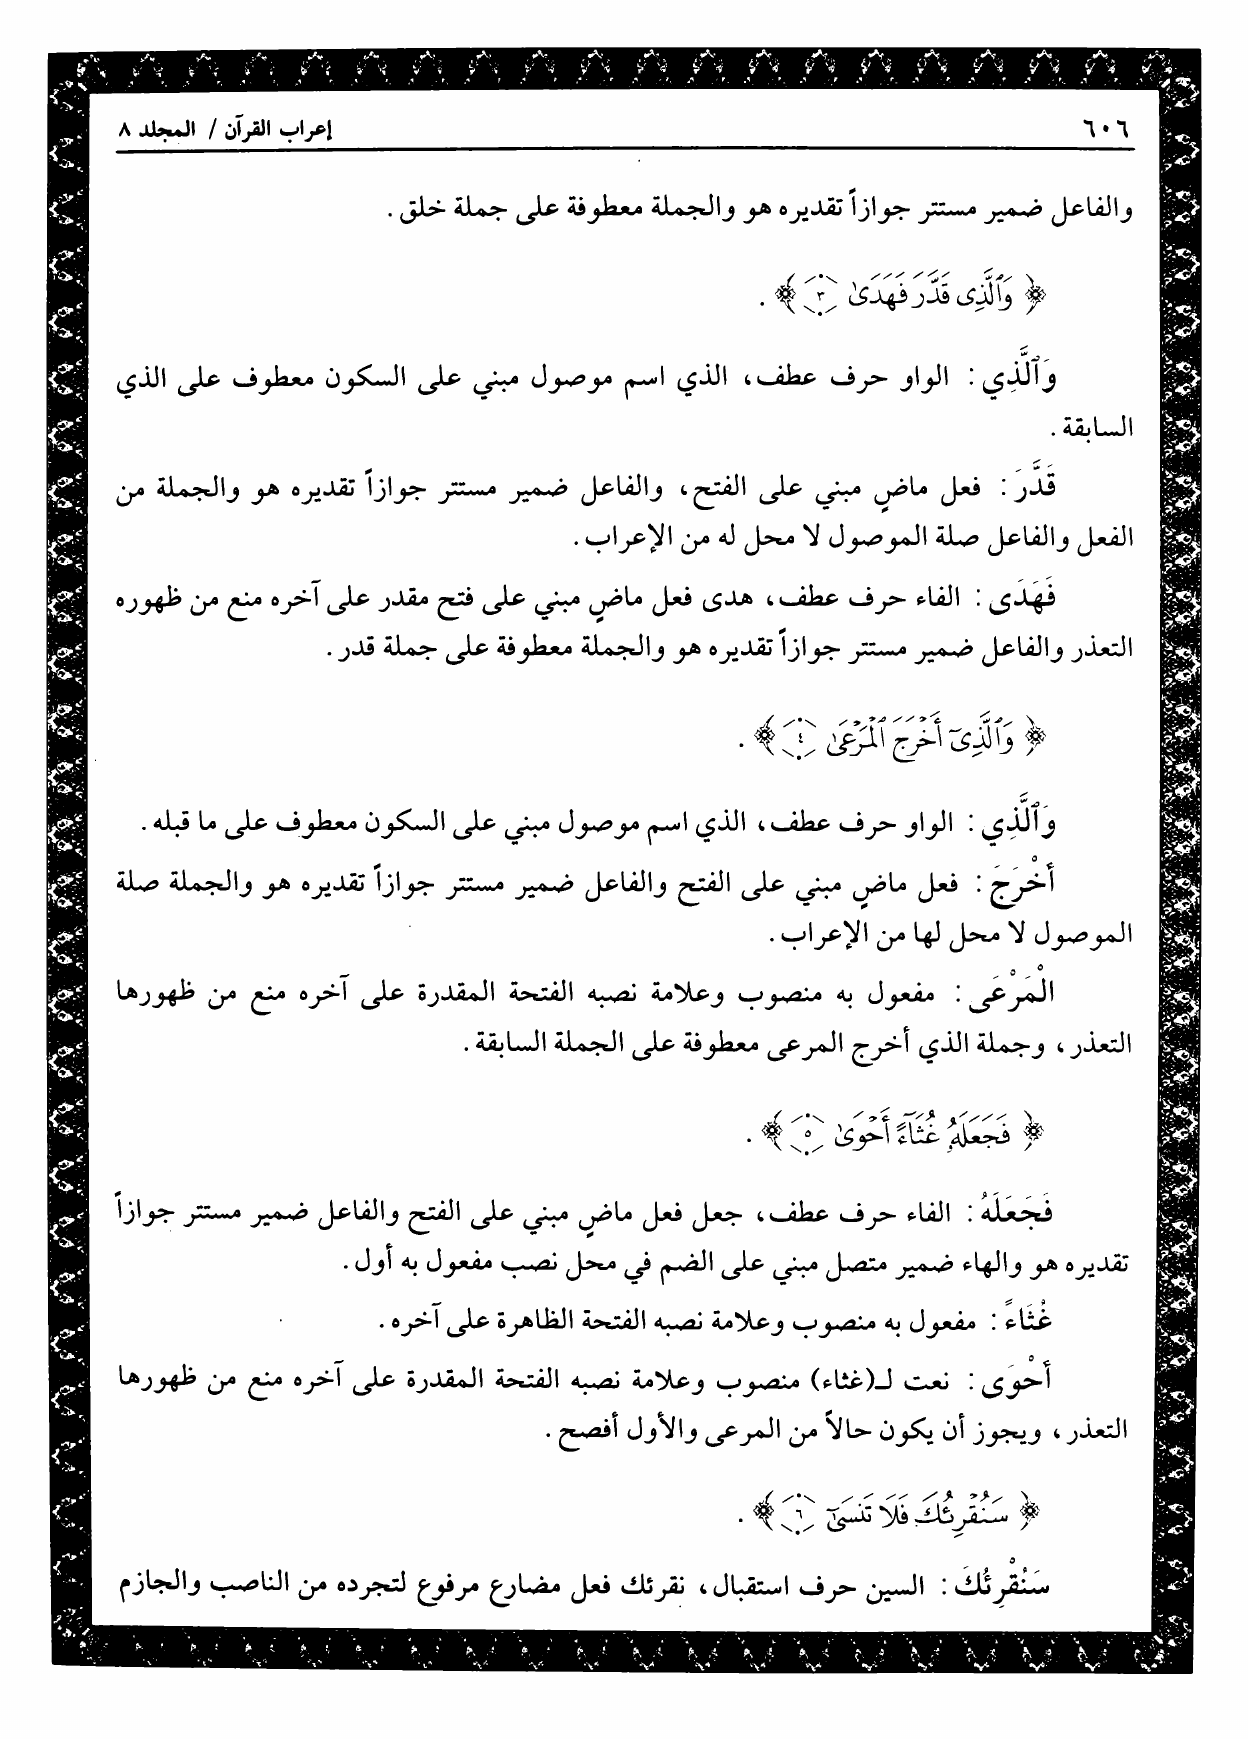 ٦٠٦ إعراب القرآن / المجلد ٨
والفاعل ضمير مستتر جوازاً تقديره هو والجملة معطوفة على جملة خلق .
﴿ وَٱلَّذِى قَدَّرَ فَهَدَىٰ ٣ ﴾ .
وَٱلَّذِي : الواو حرف عطف، الذي اسم موصول مبني على السكون معطوف على الذي
السابقة .
قَدَّرَ : فعل ماضٍ مبني على الفتح، والفاعل ضمير مستتر جوازاً تقديره هو والجملة من
الفعل والفاعل صلة الموصول لا محل له من الإعراب .
فَهَدَى : الفاء حرف عطف، هدى فعل ماضٍ مبني على فتح مقدر على آخره منع من ظهوره
التعذر والفاعل ضمير مستتر جوازاً تقديره هو والجملة معطوفة على جملة قدر .
﴿ وَٱلَّذِىٓ أَخْرَجَ ٱلْمَرْعَىٰ ٤ ﴾ .
وَٱلَّذِي : الواو حرف عطف، الذي اسم موصول مبني على السكون معطوف على ما قبله .
أَخْرَجَ : فعل ماضٍ مبني على الفتح والفاعل ضمير مستتر جوازاً تقديره هو والجملة صلة
الموصول لا محل لها من الإعراب .
الْمَرْعَى : مفعول به منصوب وعلامة نصبه الفتحة المقدرة على آخره منع من ظهورها
التعذر، وجملة الذي أخرج المرعى معطوفة على الجملة السابقة .
﴿ فَجَعَلَهُۥ غُثَآءً أَحْوَىٰ ٥ ﴾ .
فَجَعَلَهُ : الفاء حرف عطف، جعل فعل ماضٍ مبني على الفتح والفاعل ضمير مستتر جوازاً
تقديره هو والهاء ضمير متصل مبني على الضم في محل نصب مفعول به أول .
غُثَاءً : مفعول به منصوب وعلامة نصبه الفتحة الظاهرة على آخره .
أَحْوَى : نعت لـ(غثاء) منصوب وعلامة نصبه الفتحة المقدرة على آخره منع من ظهورها
التعذر، ويجوز أن يكون حالاً من المرعى والأول أفصح .
﴿ سَنُقْرِئُكَ فَلَا تَنسَىٰٓ ٦ ﴾ .
سَنُقْرِئُكَ : السين حرف استقبال، نقرئك فعل مضارع مرفوع لتجرده من الناصب والجازم